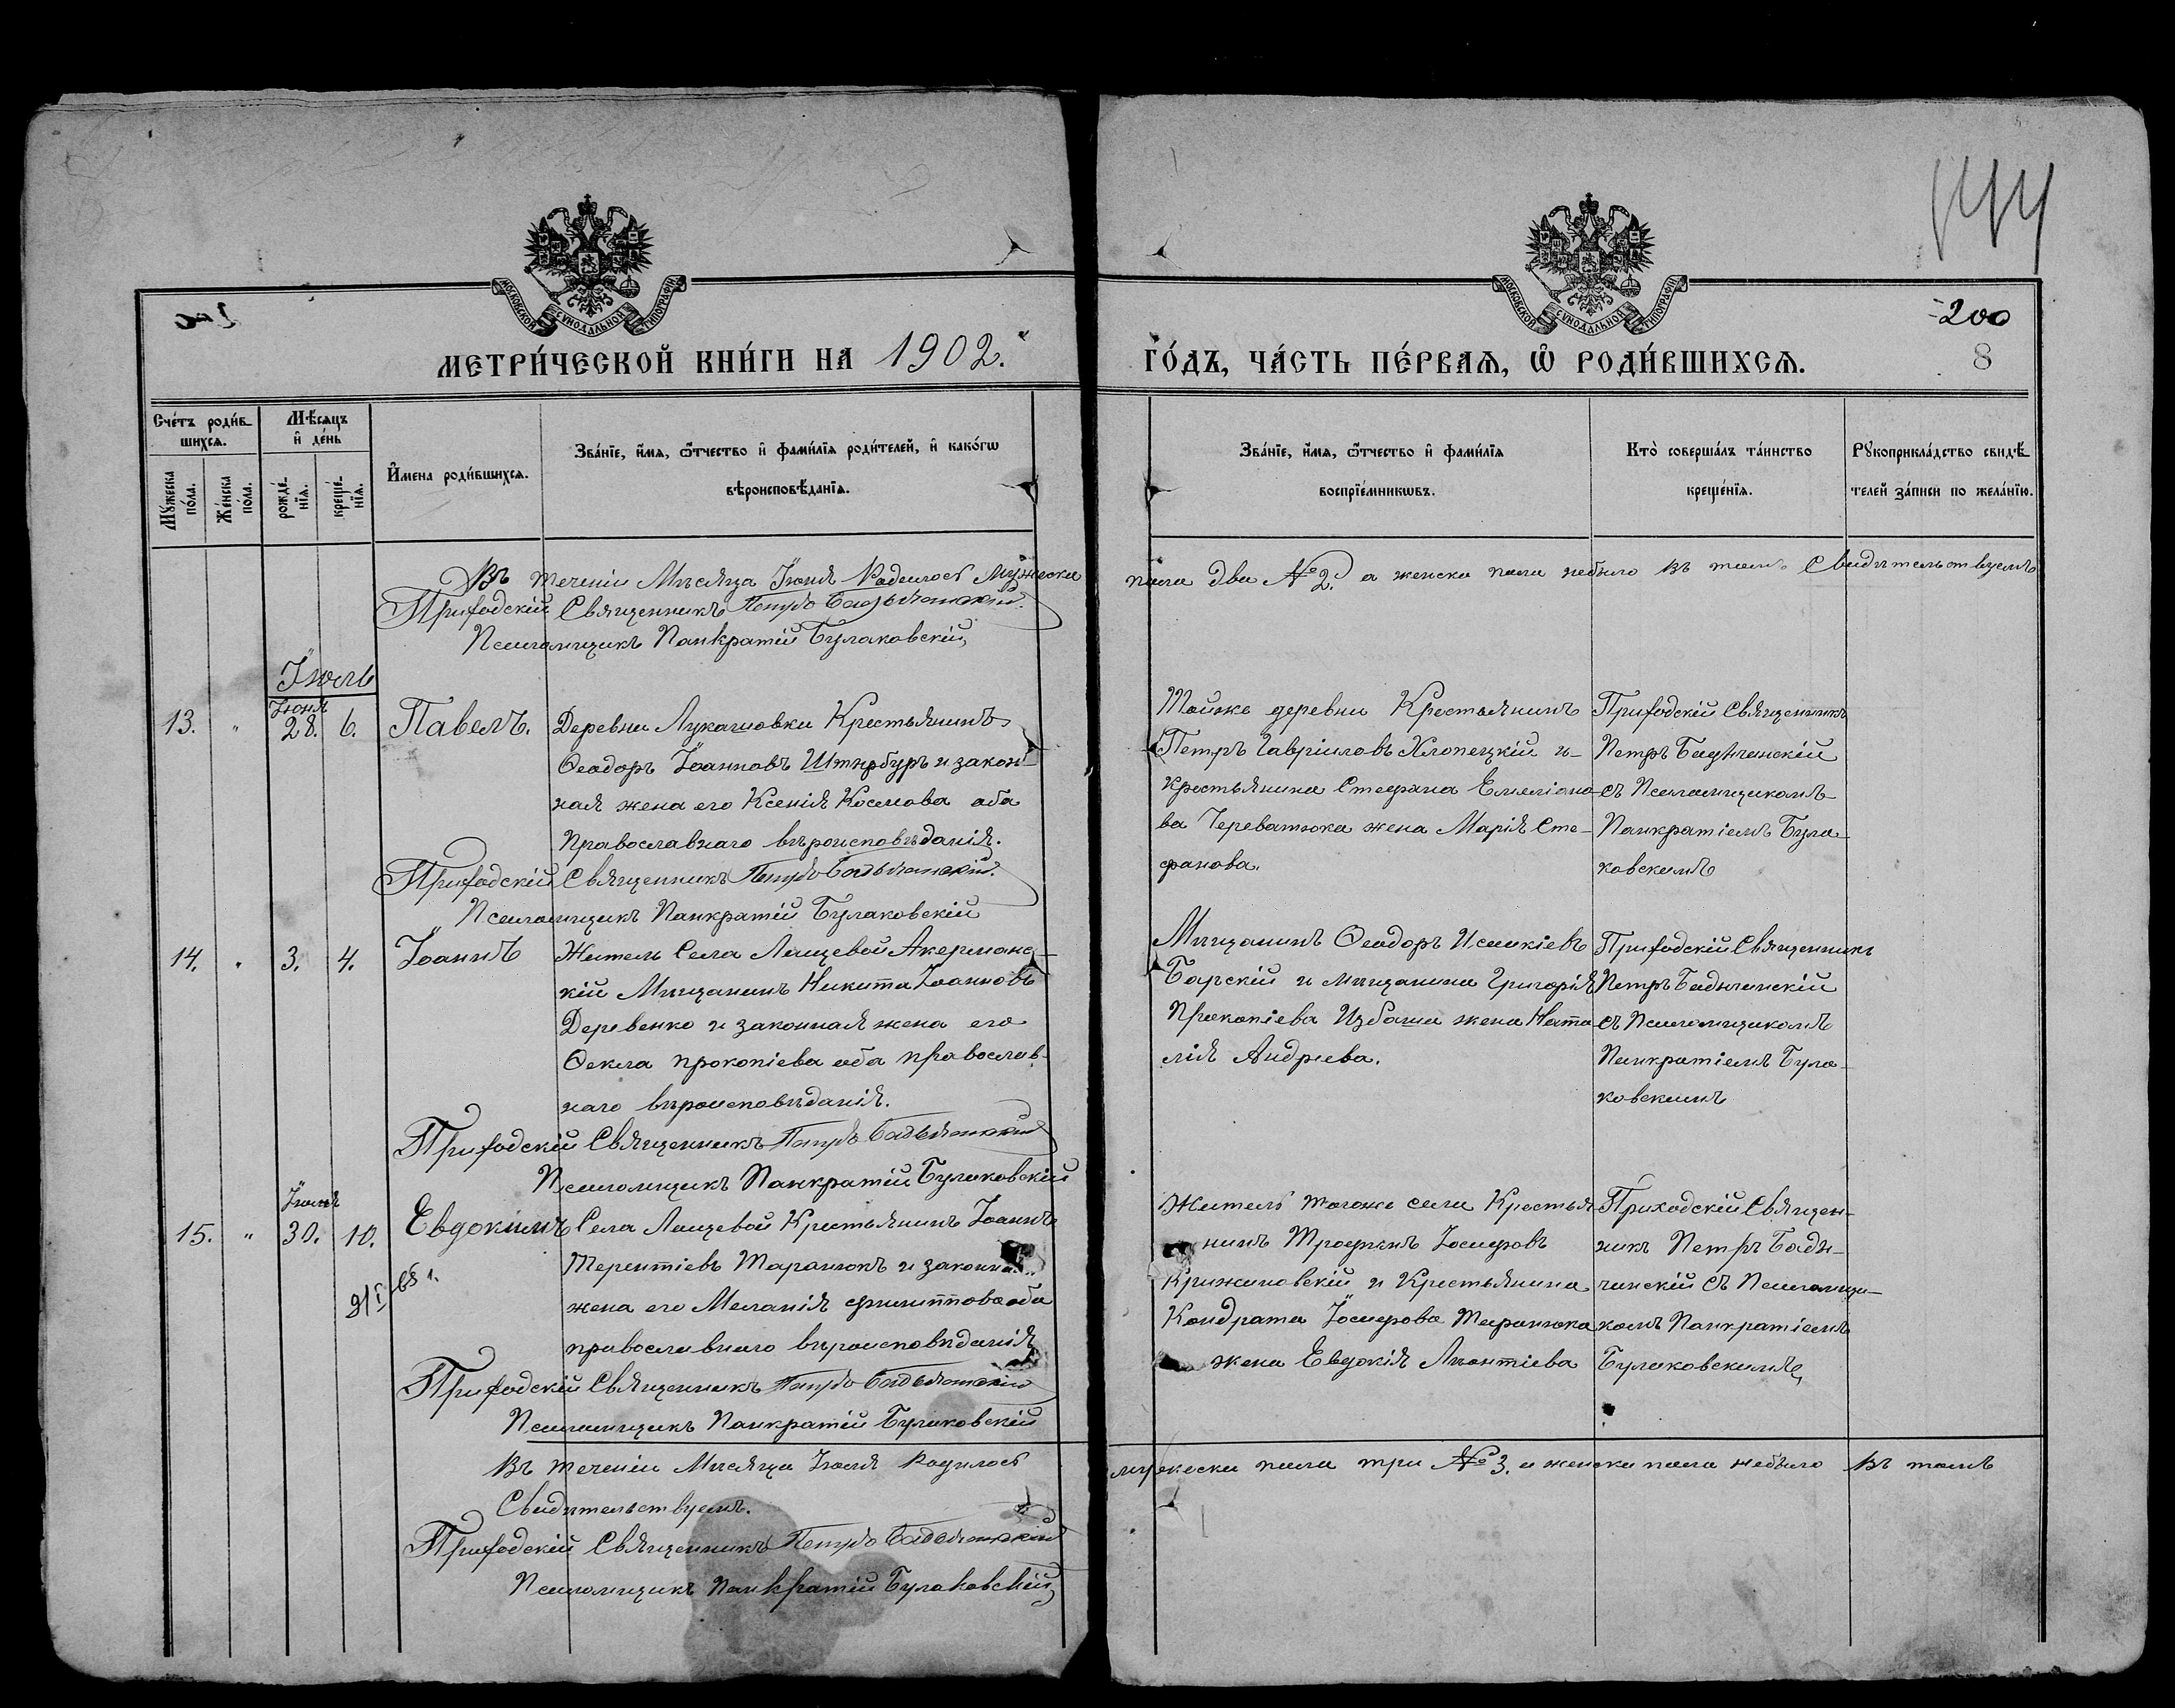 144
МОСКОВСКОЙ СѴНОДАЛЬНОЙ ТИПОГРАФІИ
МОСКОВСКОЙ СѴНОДАЛЬНОЙ ТИПОГРАФІИ
200
8
МЕТРИ́ЧЕСКОЙ КНИ́ГИ НА 1902. ГО́ДЪ, ЧА́СТЬ ПЕ́РВАѦ, Ѡ҆ РОДИ́ВШИХСѦ.
Сче́тъ роди́в-
шихсѧ.
Мꙋ́жеска по́ла.
Же́нска по́ла.
Мѣ́сѧцъ
и҆ де́нь
рожде́-
нїѧ.
креще́-
нїѧ.
И҆мена роди́вшихсѧ.
Зва́нїе, и҆́мѧ, ѻ҆́тчество и҆ фами́лїѧ роди́телей, и҆ како́гѡ
вѣроисповѣ́данїѧ.
Зва́нїе, и҆́мѧ, ѻ҆́тчество и҆ фами́лїѧ
воспрїе́мникѡвъ.
Кто̀ соверша́лъ та́инство
креще́нїѧ.
Рꙋкоприкла́дство свидѣ́-
телей за́писи по жела́нїю.
Въ теченіи Мѣсяца Іюня Родилось Мужеска пола два №2. а женска пола небыло въ томъ Свидѣтельствуемъ
Приходскій Священникъ Петръ
Псаломщикъ Панкратій Булаковскій
Іюль
Іюня
13. " 28. 6. Павелъ.
Деревни Лукашовки Крестьянинъ
Ѳеодоръ Іоанновъ Штирбуръ и закон-
ная жена его Ксенія Космова оба
Православнаго вѣроисповѣданія.
Тойже деревни Крестьянинъ
Петръ Гавріиловъ Хлопецкій и
крестьянина Стефана Емеліано-
ва Череватюка жена Марія Сте-
фанова.
Приходскій Священникъ
Петръ
съ Псаломщикомъ
Панкратіемъ Була-
ковскимъ
Приходскій Священникъ Петръ
Псаломщикъ Панкратій Булаковскій
14. " 3. 4. Іоаннъ
Житель Села Лащевой Акерманс-
кій Мѣщанинъ Никита Іоанновъ
Деревенко и законная жена его
Ѳекла прокопіева оба православ-
наго вѣроисповѣданія.
Мѣщанинъ Ѳеодоръ
Барскій и мѣщанина Григорія
Прокопіева Избаша жена Ната-
лія Андрѣева.
Приходскій Священникъ
Петръ
съ Псаломщикомъ
Панкратіемъ Була-
ковскимъ
Приходскій Священникъ Петръ
Псаломщикъ Панкратій Булаковскій
Іюня
15. " 30. 10. Евдокимъ
Села Лащевой Крестьянинъ Іоаннъ
Терентіевъ Таранюкъ и законна
жена его Меланія филиппова оба
православнаго вѣроисповѣданія
Житель тогоже села Крестья-
нинъ Трофимъ Іосифовъ
Крижановскій и Крестьянина
Кондрата Іосифова Таранюка
жена Евдокія Леонтіева
Приходскій Священ-
никъ Петръ Бадь-
чинскій съ Псаломщи-
комъ Панкратіемъ
Булаковскимъ
Приходскій Священникъ Петръ
Псаломщикъ Панкратій Булаковскій
Въ теченіи Мѣсяца Іюля Родилось мужеска пола три №3. а женска пола небыло въ томъ
Свидѣтельствуемъ.
Приходскій Священникъ Петръ
Псаломщикъ Панкратій Булаковскій